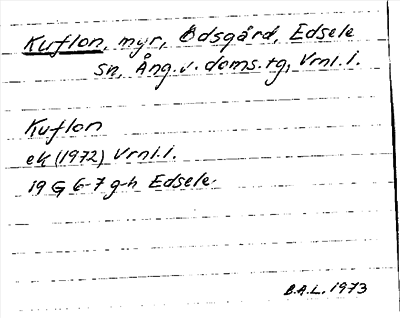 Kuflon, myr, Ödsgård, Edsele
sn, Ång. v. doms. tg, Vrnl. l.
Kuflon
ek (1972) Vrnl. l.
19 G 6-7 g-h Edsele.
B.A.L. 1973